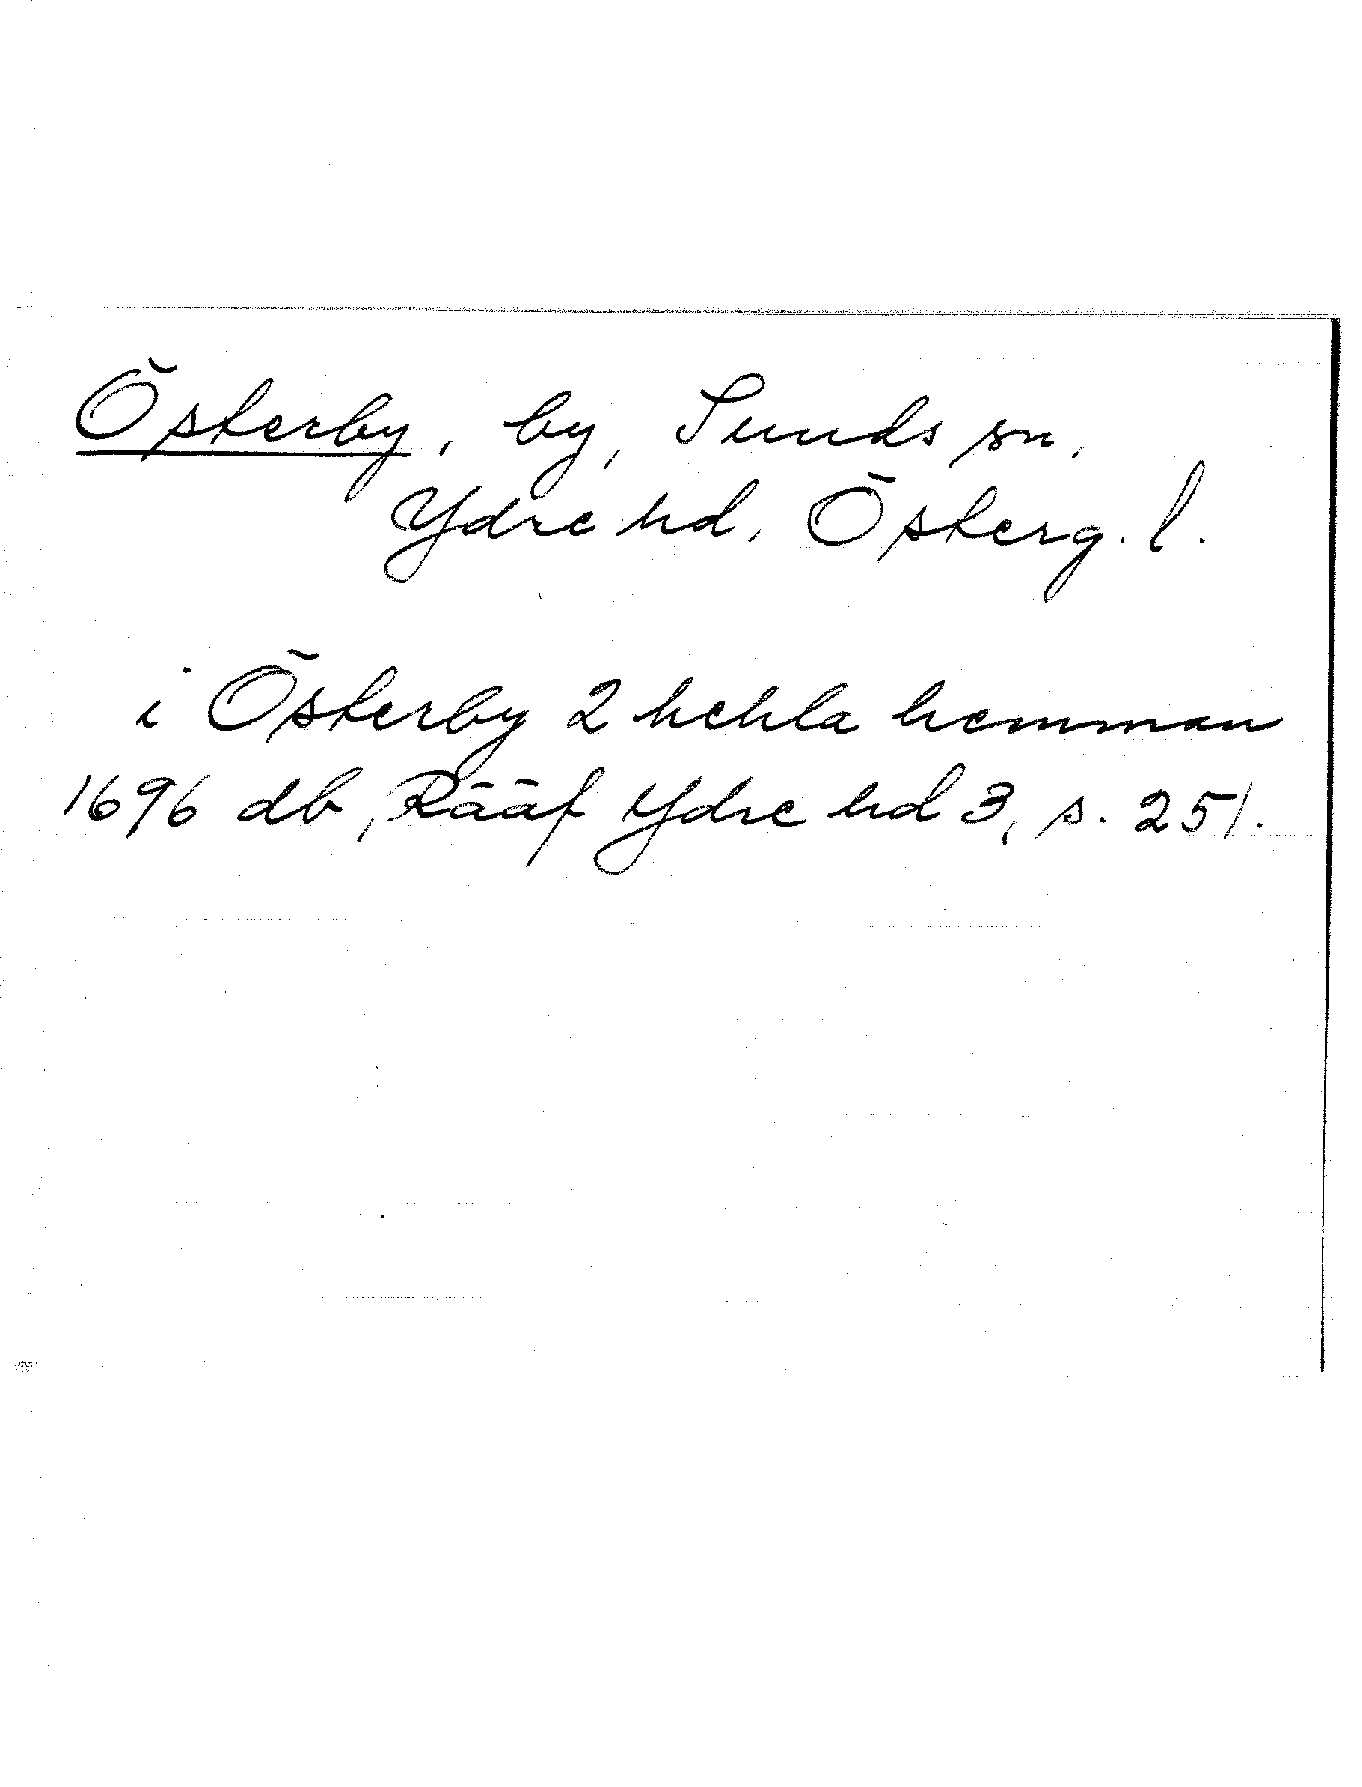 Österby, by, Sunds sn,
Ydre hd, Österg. l.
i Österby 2 hehla hemman
1696 db, Rääf Ydre hd 3, s. 251.